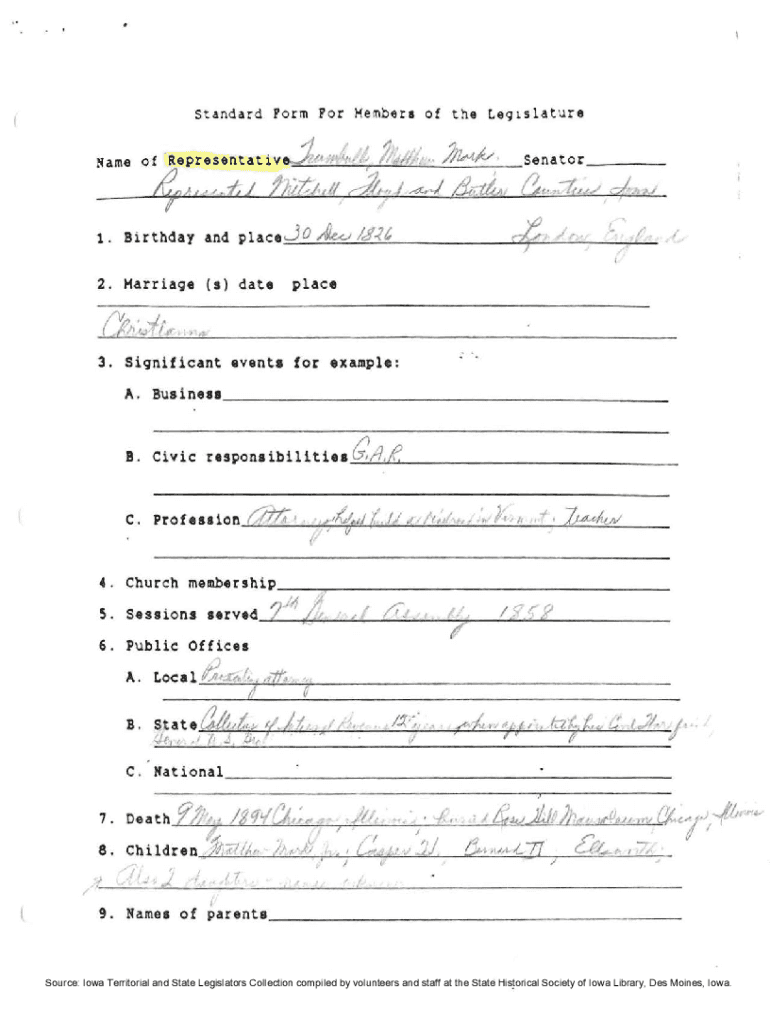 Standard Form For Members of the Legislature
Name of Representative Trumbull, Matthew Mark. Senator
Represented Mitchell, Floyd and Butler Counties, Iowa
1. Birthday and place 30 Dec 1826 London, England
2. Marriage (s) date place
Christianna
3. Significant events for example:
A. Business
B. Civic responsibilities G.A.R.
C. Profession Attorney, helped build a railroad in Vermont; Teacher
4. Church membership
5. Sessions served 7th General Assembly 1858
6. Public Offices
A. Local attorney
B. State Collector of Revenue 12 years, when appointed by his
General U.S.
C. National
7. Death 9 May 1894 Chicago, Illinois; buried Rose Hill Mausoleum, Chicago, Illinois
8. Children Matthew Mark, Jr.; Casper H; Bernard II; Ellsworth;
Also 2 daughters - names unknown
9. Names of parents
Source: Iowa Territorial and State Legislators Collection compiled by volunteers and staff at the State Historical Society of Iowa Library, Des Moines, Iowa.